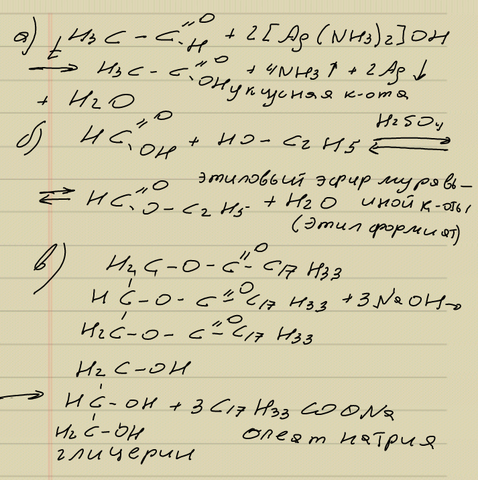 а) H3C – C=O H + 2[Ag(NH3)2]OH
t → H3C – C=O OH + 4NH3↑ + 2Ag↓
уксусная к-ота
+ H2O
б) HC=O OH + HO – C2H5 H2SO4 ⇄
⇄ HC=O O – C2H5 + H2O этиловый эфир муравь-
иной к-оты
(этилформиат)
в) H2C – O – C=O C17H33
HC – O – C=O C17H33 + 3NaOH →
H2C – O – C=O C17H33
H2C – OH
→ HC – OH + 3C17H33COONa
H2C – OH олеат натрия
глицерин